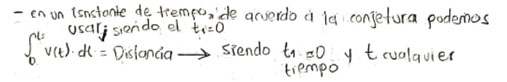 - en un Isnstante de trempo, de acuerdo a la conjetura podemos
usar, siendo el t₁=0
∫₀ᵗ v(t)·dt = Distancia → siendo t₁=0 y t cualquier
tiempo